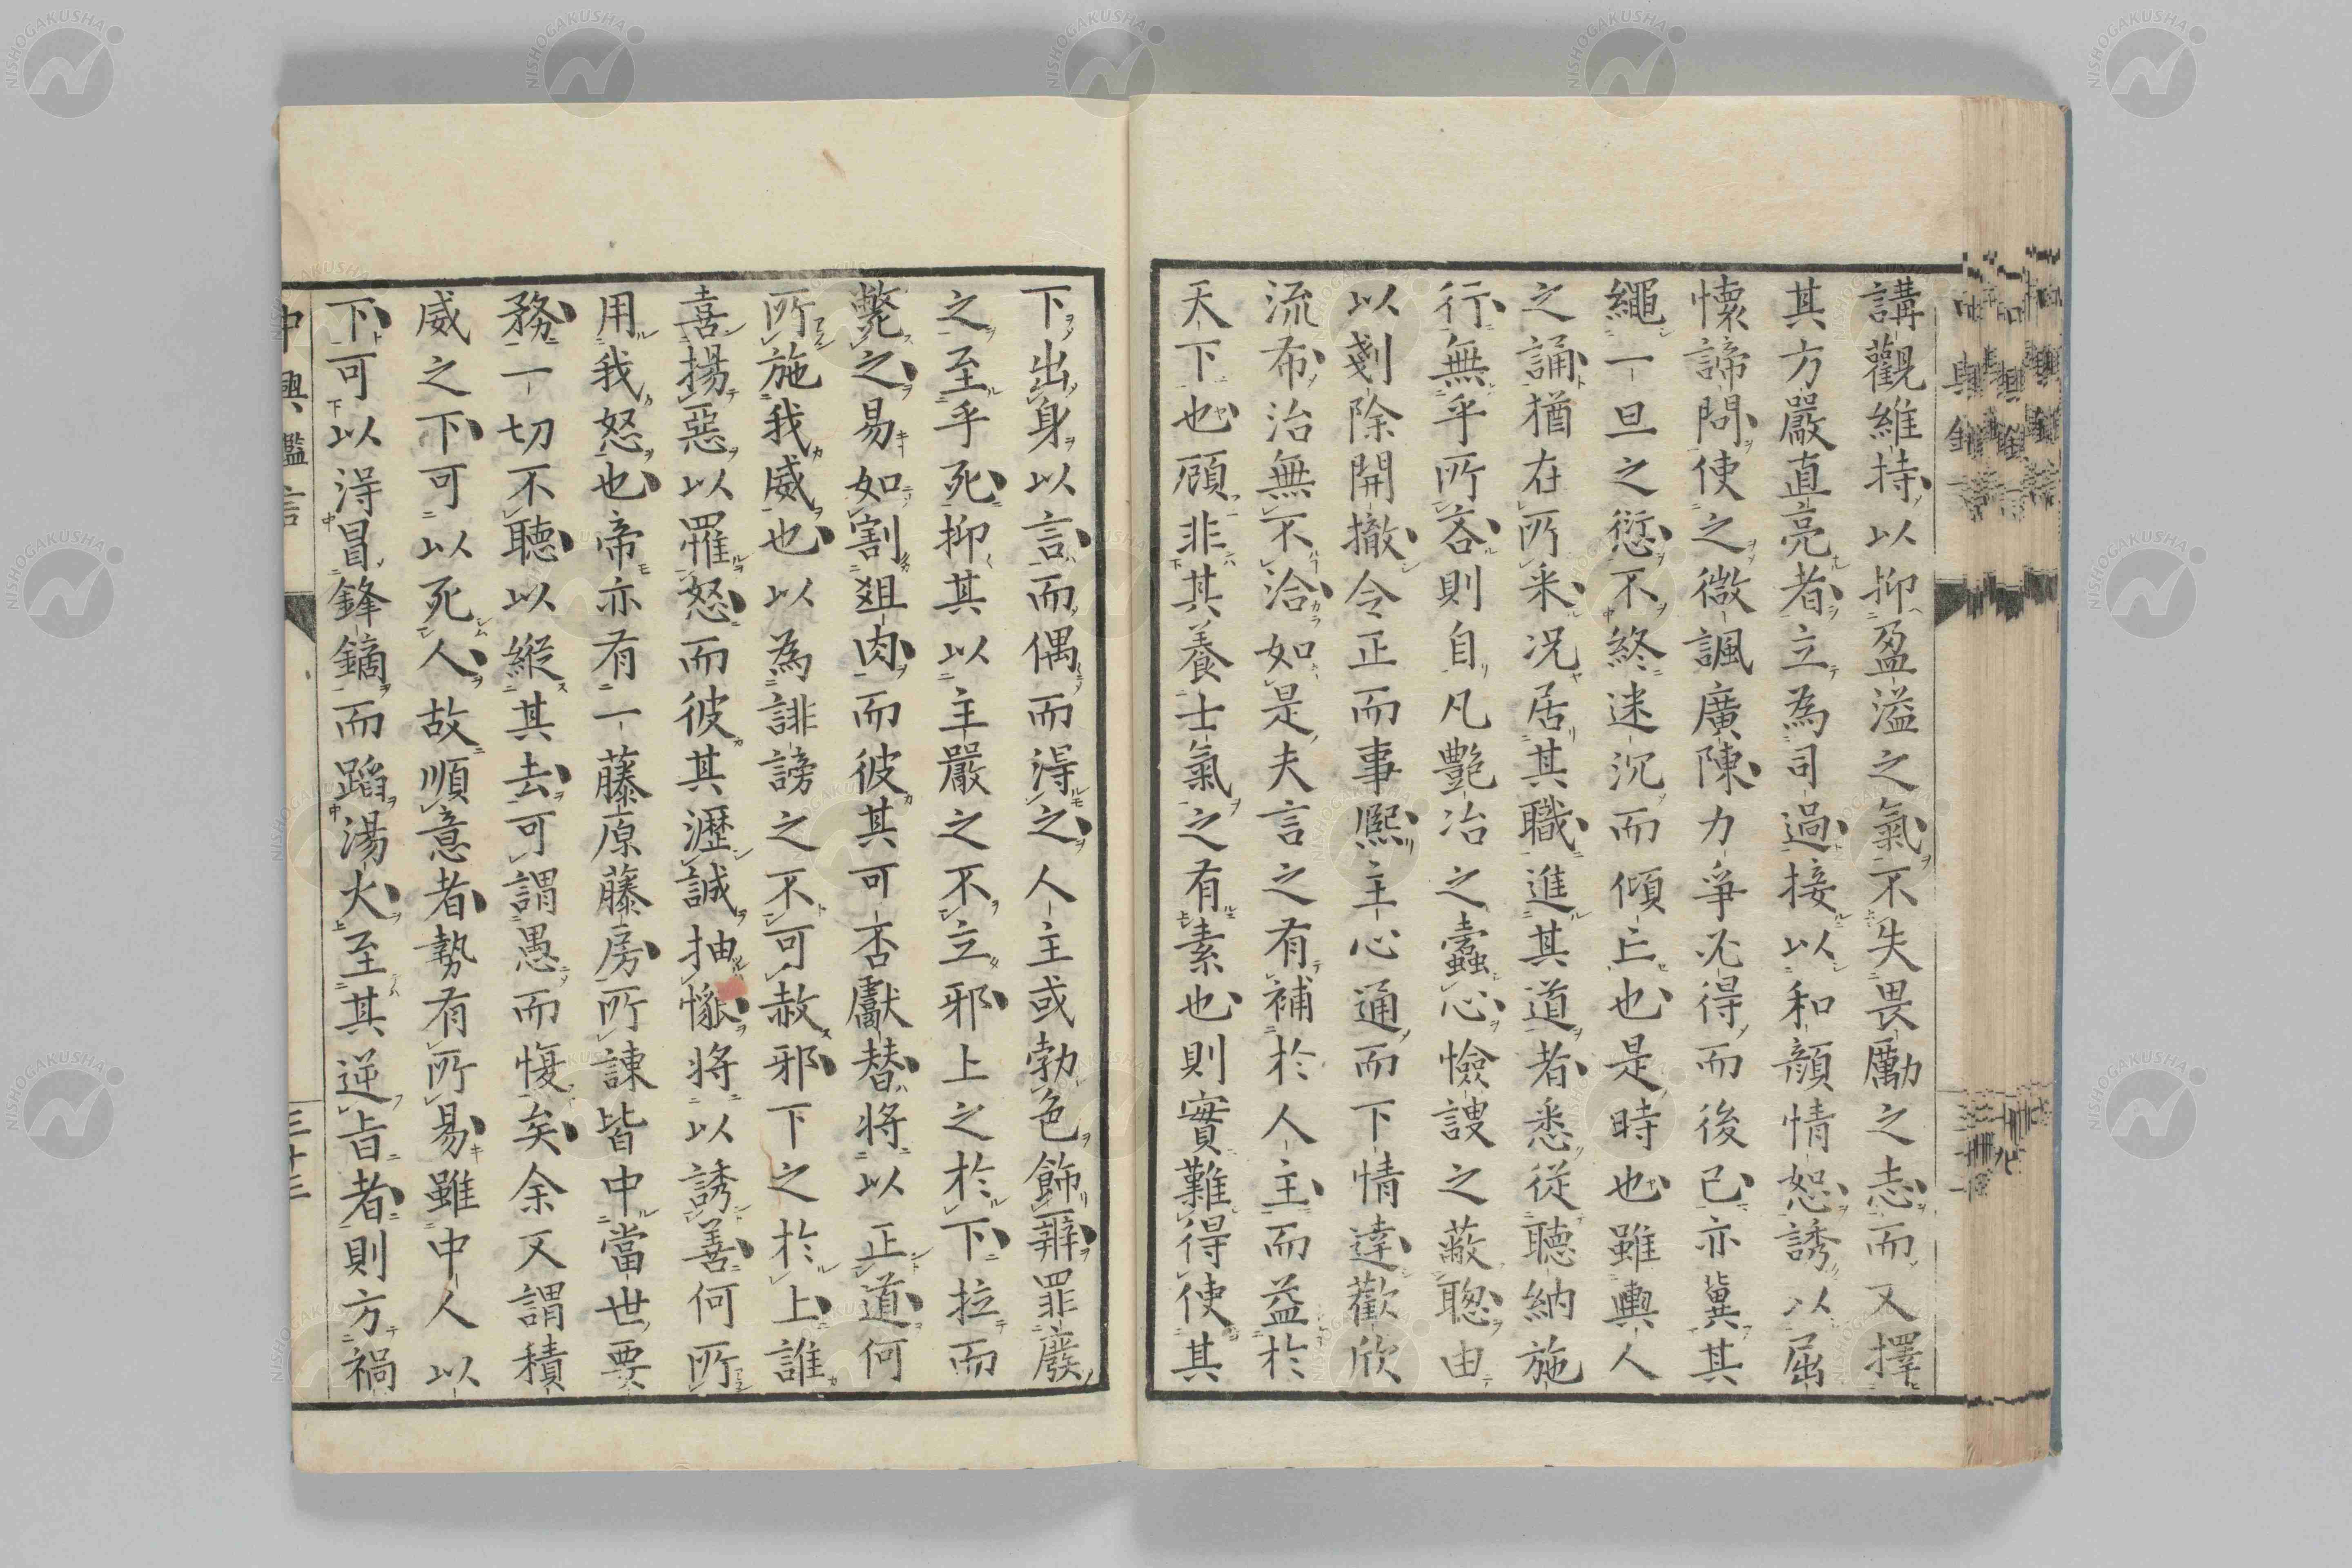 講觀維持以抑盈溢之氣不失畏勵之志而又擇
其方嚴直亮者立為司過接以和顏情恕誘以屈
懷諦問使之微諷廣陳力爭必得而後已亦冀其
繩一旦之愆不終迷沉而傾亡也是時也雖輿人
之誦猶在所采況居其職進其道者悉從聽納施
行無乎所吝則自凡艷冶之蠹心憸謏之蔽聰由
以剗除開撤令正而事熙主心通而下情達歡欣
流布治無不洽如是夫言之有補於人主而益於
天下也顧非其養士氣之有素也則實難得使其
下出身以言而偶而得之人主或勃色飾辭罪廢
之至乎死抑其以主嚴之不立邪上之於下拉而
斃之易如割俎肉而彼其可否獻替將以正道何
所施我威也以為誹謗之不可赦邪下之於上誰
喜揚惡以罹怒而彼其瀝誠抽悃將以誘善何所
用我怒也帝亦有一藤原藤房所諫皆中當世要
務一切不聽以縱其去可謂愚而愎矣余又謂積
威之下可以死人故順意者勢有所易雖中人以
下可以得冒鋒鏑而蹈湯火至其逆旨者則方禍
中興鑑言
三十三